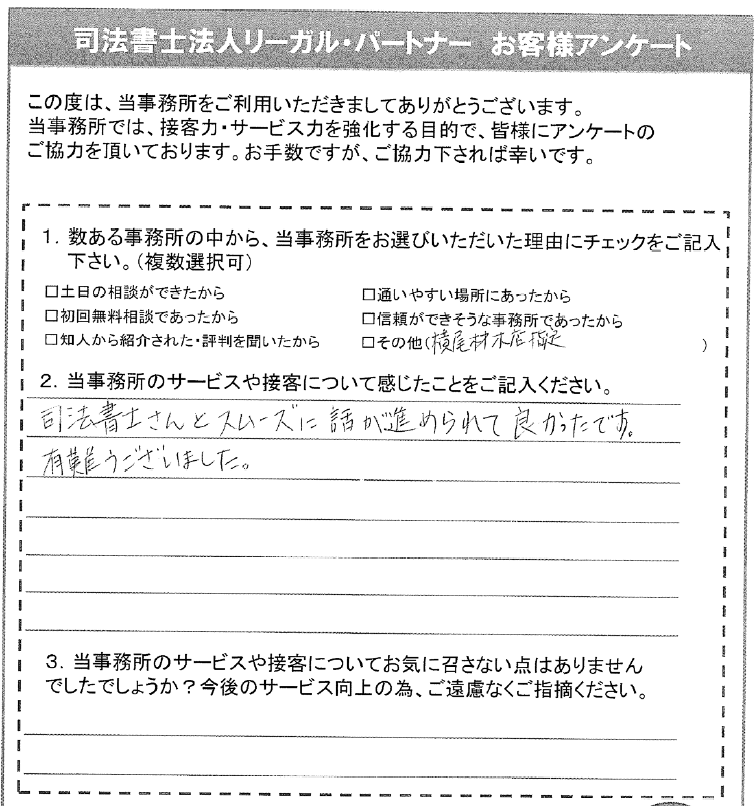 司法書士法人リーガル・パートナー お客様アンケート
この度は、当事務所をご利用いただきましてありがとうございます。
当事務所では、接客力・サービス力を強化する目的で、皆様にアンケートの
ご協力を頂いております。お手数ですが、ご協力下されば幸いです。
1. 数ある事務所の中から、当事務所をお選びいただいた理由にチェックをご記入
下さい。(複数選択可)
□土日の相談ができたから □通いやすい場所にあったから
□初回無料相談であったから □信頼ができそうな事務所であったから
□知人から紹介された・評判を聞いたから □その他(横尾材木店指定 )
2. 当事務所のサービスや接客について感じたことをご記入ください。
司法書士さんとスムーズに話が進められて良かったです。
有難うございました。
3. 当事務所のサービスや接客についてお気に召さない点はありません
でしたでしょうか?今後のサービス向上の為、ご遠慮なくご指摘ください。